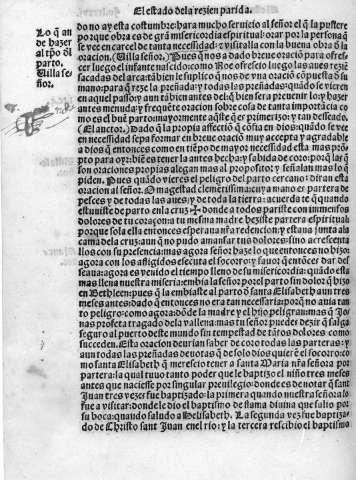 El estado dela rezien parida.
Lo q̃ an
de hazer
al tp̃o ďl
parto.
Uilla se
ñor.
do no ay esta costumbre: hara mucho seruicio al señor el q̃ la pusiere
porque obra es de grã misericordia espiritual: orar por la persona q̃
se vee en carcel de tanta necessidad: z visitalla con la buena obra ď la
oracion. (Uilla señor.) Pues q̃ nos a dado breue oraciõ para ofre
cer luego el infante nascido: como Noe ofrescio luego las aues rezie
sacadas del arca: tãbien le suplico q̃ nos de vna oraciõ cõpuesta ď su
mano: para q̃ reze la preñada: y todas las preñadas: quãdo se vieren
en aquel passo: y aun tã bien antes del: q̃ bien sera preuenir lo: y hazer
antes menuda y frequẽte oration sobre cosa de tanta importãcia co
mo es el buẽ parto: mayormente aq̃ste que es primerizo: y tan deseado.
(El auctor.) Dado q̃ la propia affectiõ q̃ cõsta en dios: quãdo se vee
en necessidad sepa formar en breue oratiõ muy accepta y agradable
a dios q̃ entonces como en tiẽpo de mayor necessidad esta mas prõ
pto para oyr: biẽ es tener la antes hecha: y sabida de coro: porq̃ las q̃
son oraciones propias allegan mas al proposito: y señalan mas lo q̃
piden. Pues quãdo vierẽs el peligro del parto cercano: diran esta
oracion al señor. O magestad clementissima: cuya mano es partera de
pesces y de todas las aues: y de toda la tierra: acuerda te q̃ quando
estuuiste de parto en la cruz ✠ donde a todos pariste con immensos
dolores de tu coraçon: tu misma madre hezistes partera espiritual
porque sola ella entonces esperaua nr̃a redencion: y estaua junta ala
cama dela cruz: aun q̃ no pudo amansar tus dolores: sino acrescenta
llos con su presencia: mas agora señor haze lo que entonces no hizo:
agora con los afligidos escuta el socorro y fauor q̃ entõces dar de
seaua: agora es venido el tiempo lleno de su misericordia: quãdo esta
mas llena nuestra miseria: embia la señor por el parto sin dolor q̃ vuo
en Bethleen: pues q̃ la embiaste al parto ď santa Elisabeth aun tres
meses antes: dado q̃ entonces no era tan necessaria: porq̃ no auia tan
to peligro: como agora: dõde la madre y el hijo peligran: mas q̃ Jo
nas propheta tragado dela vallena: mas tu señor puedes dezir q̃ salga
seguro al puerto deste mundo sin tempestad de tãtos dolores como
succeden. Esta oracion deurian saber de coro todas las parteras: y
aun todas las preñadas deuotas q̃ de solo dios quierẽ el socorro: co
mo santa Elisabeth q̃ merescio tener a santa Maria nr̃a señora por
partera: la qual tuuo tanto poder que le baptizo el niño tres meses
antes que naciesse por singular preuilegio: donde es de notar q̃ sant
Juan tres vezes fue baptizado: la primera quando nuestra señora lo
fue a visitar: donde le dio el baptismo de flama diuina que salio por
su boca: quando saludo a Helisabeth. La segunda vez fue baptiza
do de Christo sant Juan enel rio: y la tercera rescibio el baptismo